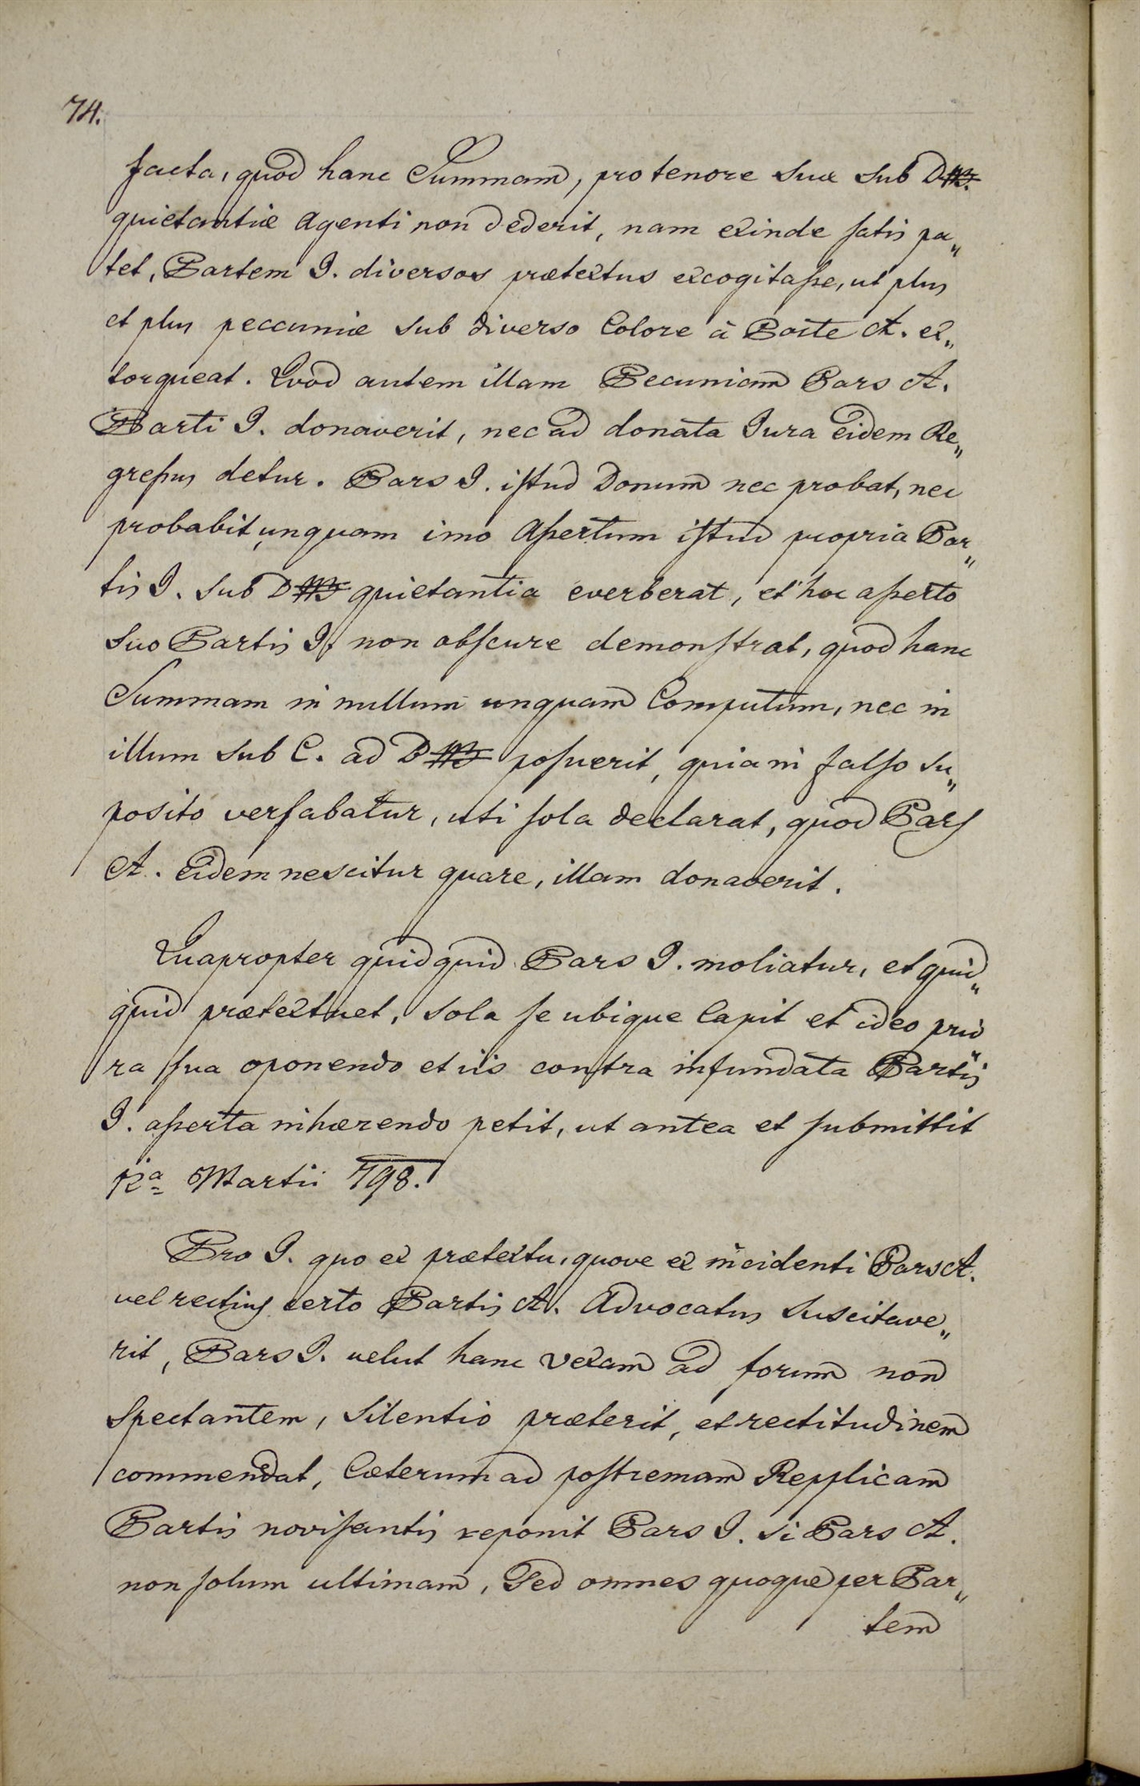 74.
facta, quod hanc Summam, pro tenore suæ sub D
quietantiæ Agenti non dederit, nam exinde satis pa„
tet, Partem I. diversos prætextus excogitasse, ut plus
et plus peccuniæ sub diverso Colore à Parte A. ex„
torqueat. Quod autem illam Pecuniam Pars A.
Parti I. donaverit, nec ad donata Jura eidem Re„
gressus detur. Pars I. istud Donum nec probat, nec
probabit unquam imo Assertum istud propria Par„
tis I. sub D quietantia everberat, et hoc asserto
suo Partis I. non obscure demonstrat, quod hanc
Summam in nullum unquam Computum, nec in
illum sub C. ad D posuerit, quia in falso su„
posito versabatur, uti sola declarat, quod Pars
A. Eidem nescitur quare, illam donaverit.
Quapropter quidquid Pars I. moliatur, et quid„
quid prætextuet, sola se ubique Capit et ideo prio
ra sua oponendo et iis contra infundata Partis
I. asserta inhærendo petit, ut antea et submittit
12a Martii 798.
Pro I. quo ex prætextu, quove ex incidenti Pars A.
vel rectius certo Partis A. Advocatus suscitave„
rit, Pars I. velut hanc vexam ad forum non
Spectantem, silentio præterit, et rectitudinem
commendat, Cæterum ad postremam Repplicam
Partis novisantis reponit Pars I. si Pars A.
non solum ultimam, Sed omnes quoque per Par„
tem